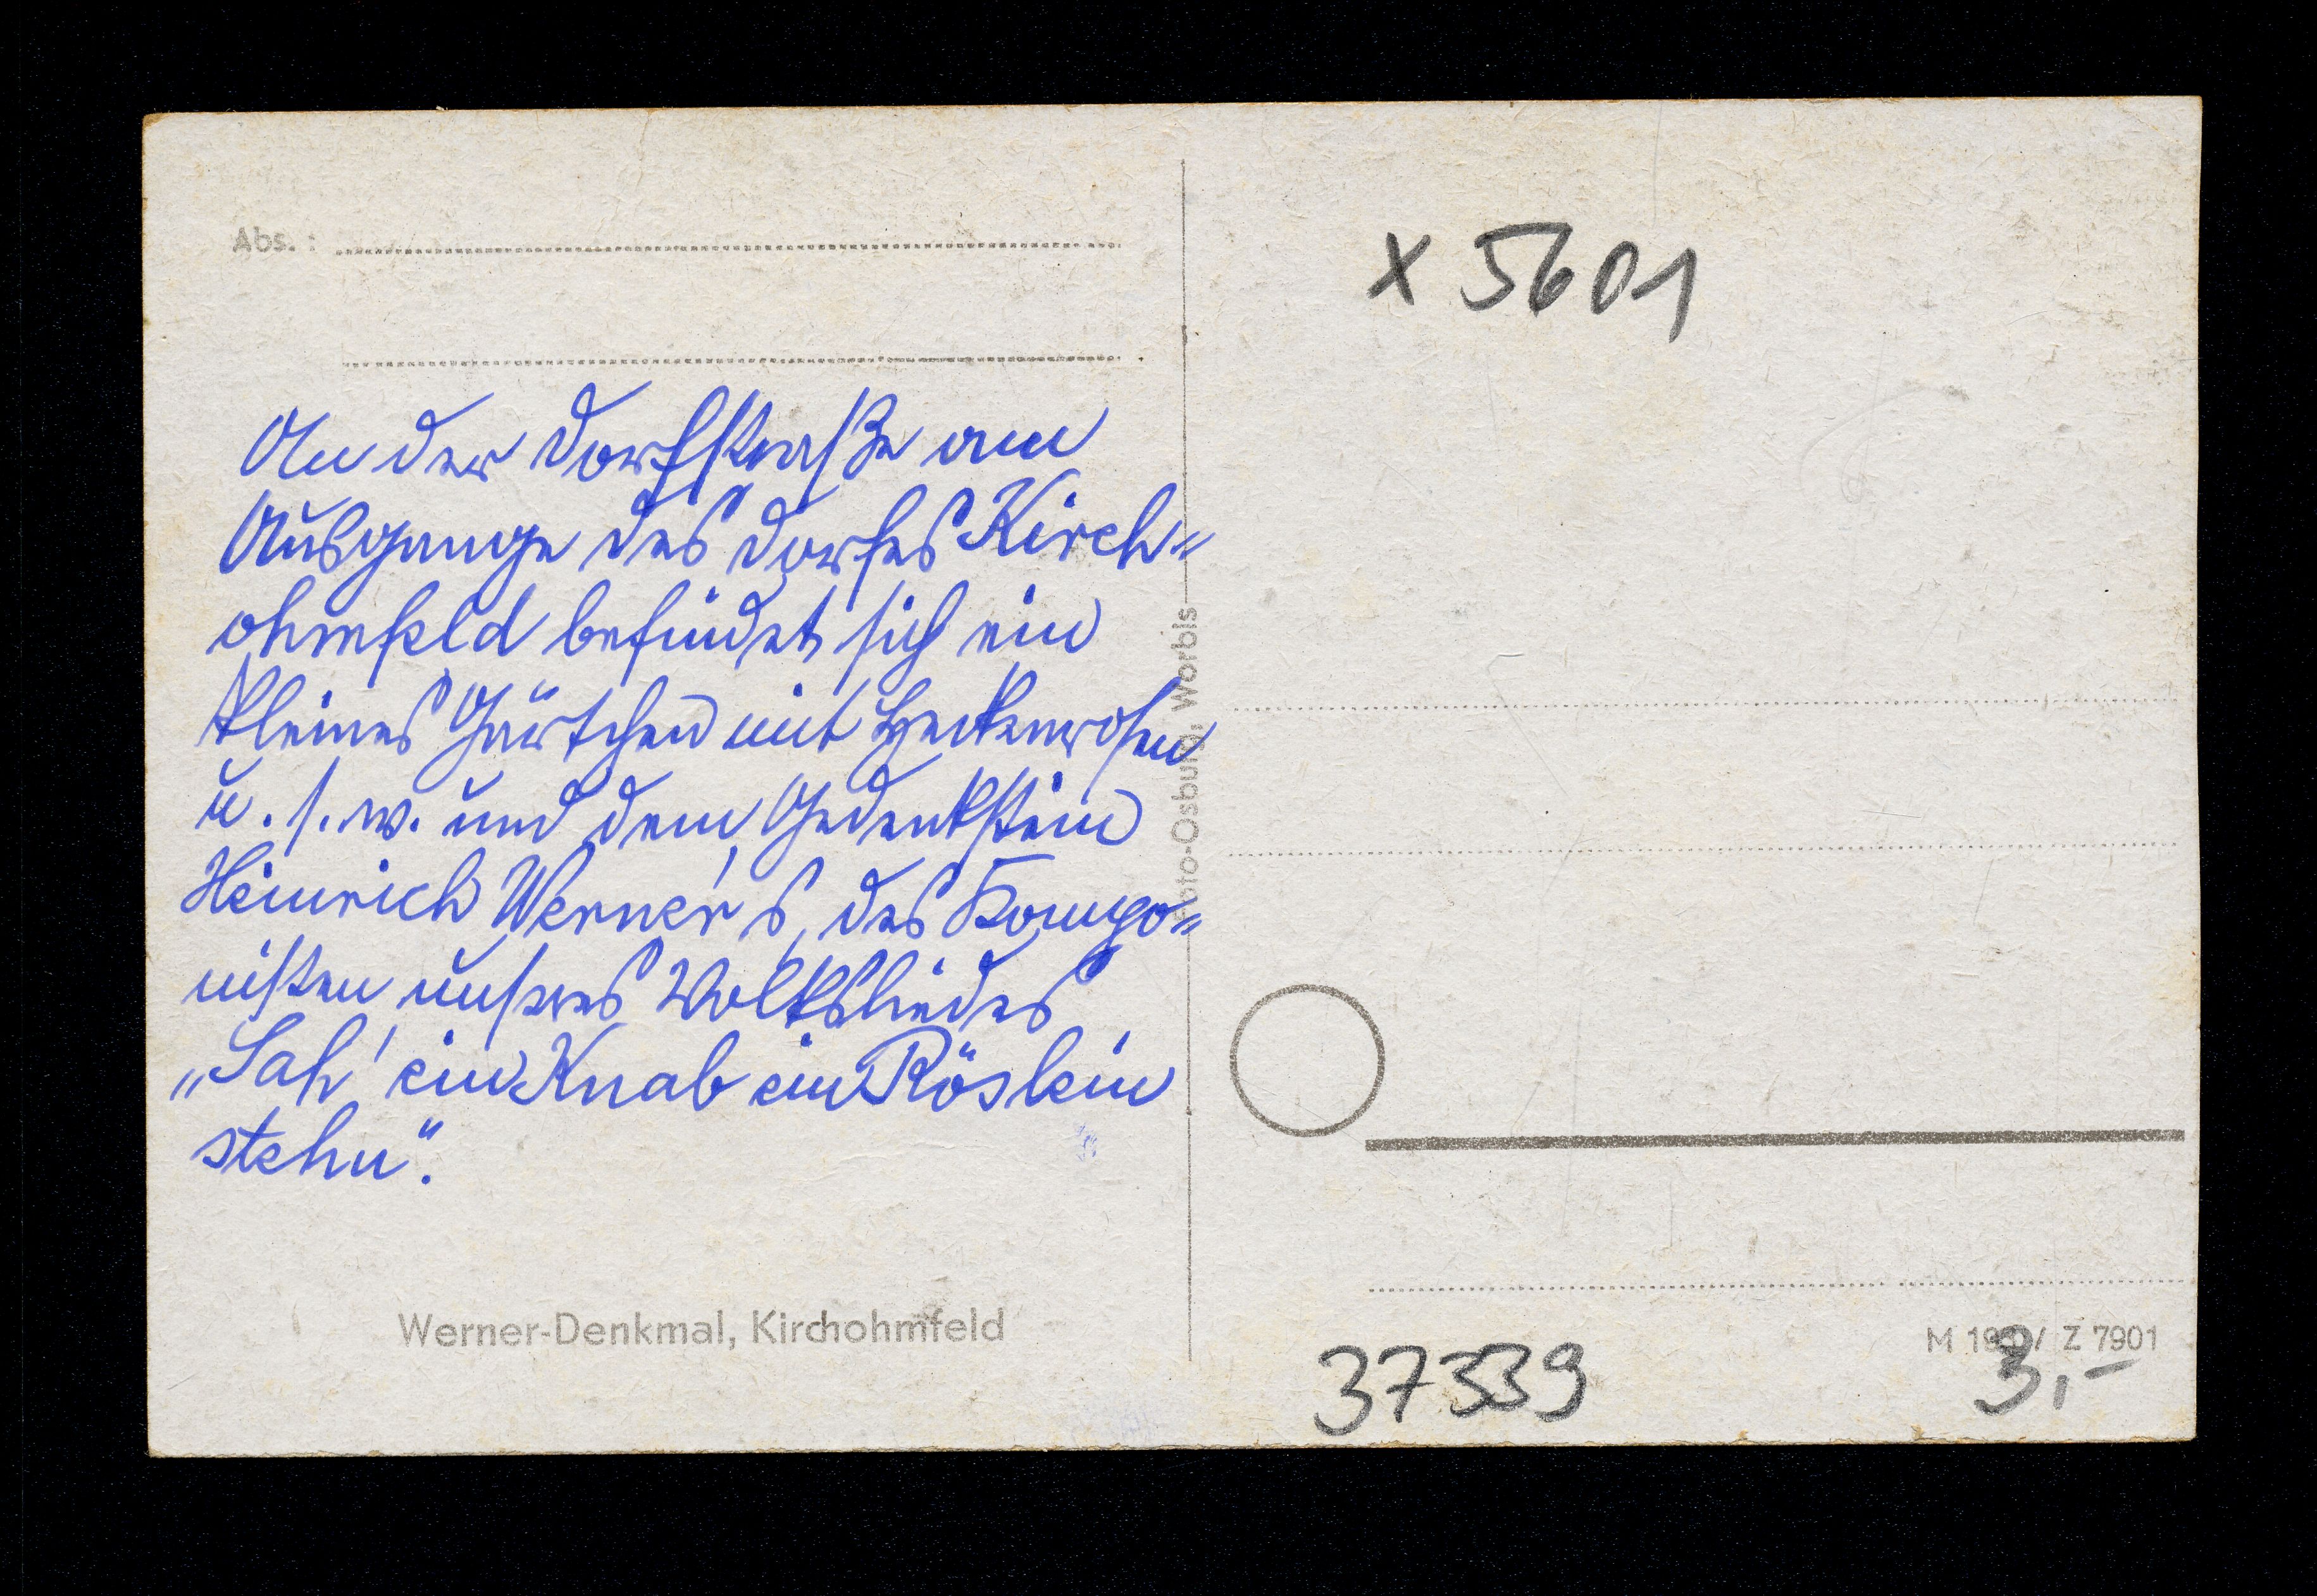 Abs. :
An der Dorfstraße am
Ausgange des Dorfes Kirch=
ohmfeld befindet sich ein
kleines Gärtchen mit Heckenrosen
u. s. w. und dem Gedenkstein
Heinrich Werner's, des Kompo=
nisten unseres Volksliedes
„Sah' ein Knab ein Röslein
stehn".
Werner-Denkmal, Kirchohmfeld
Foto-Osburg, Worbis
x 5601
37339
Z 7901
3,-